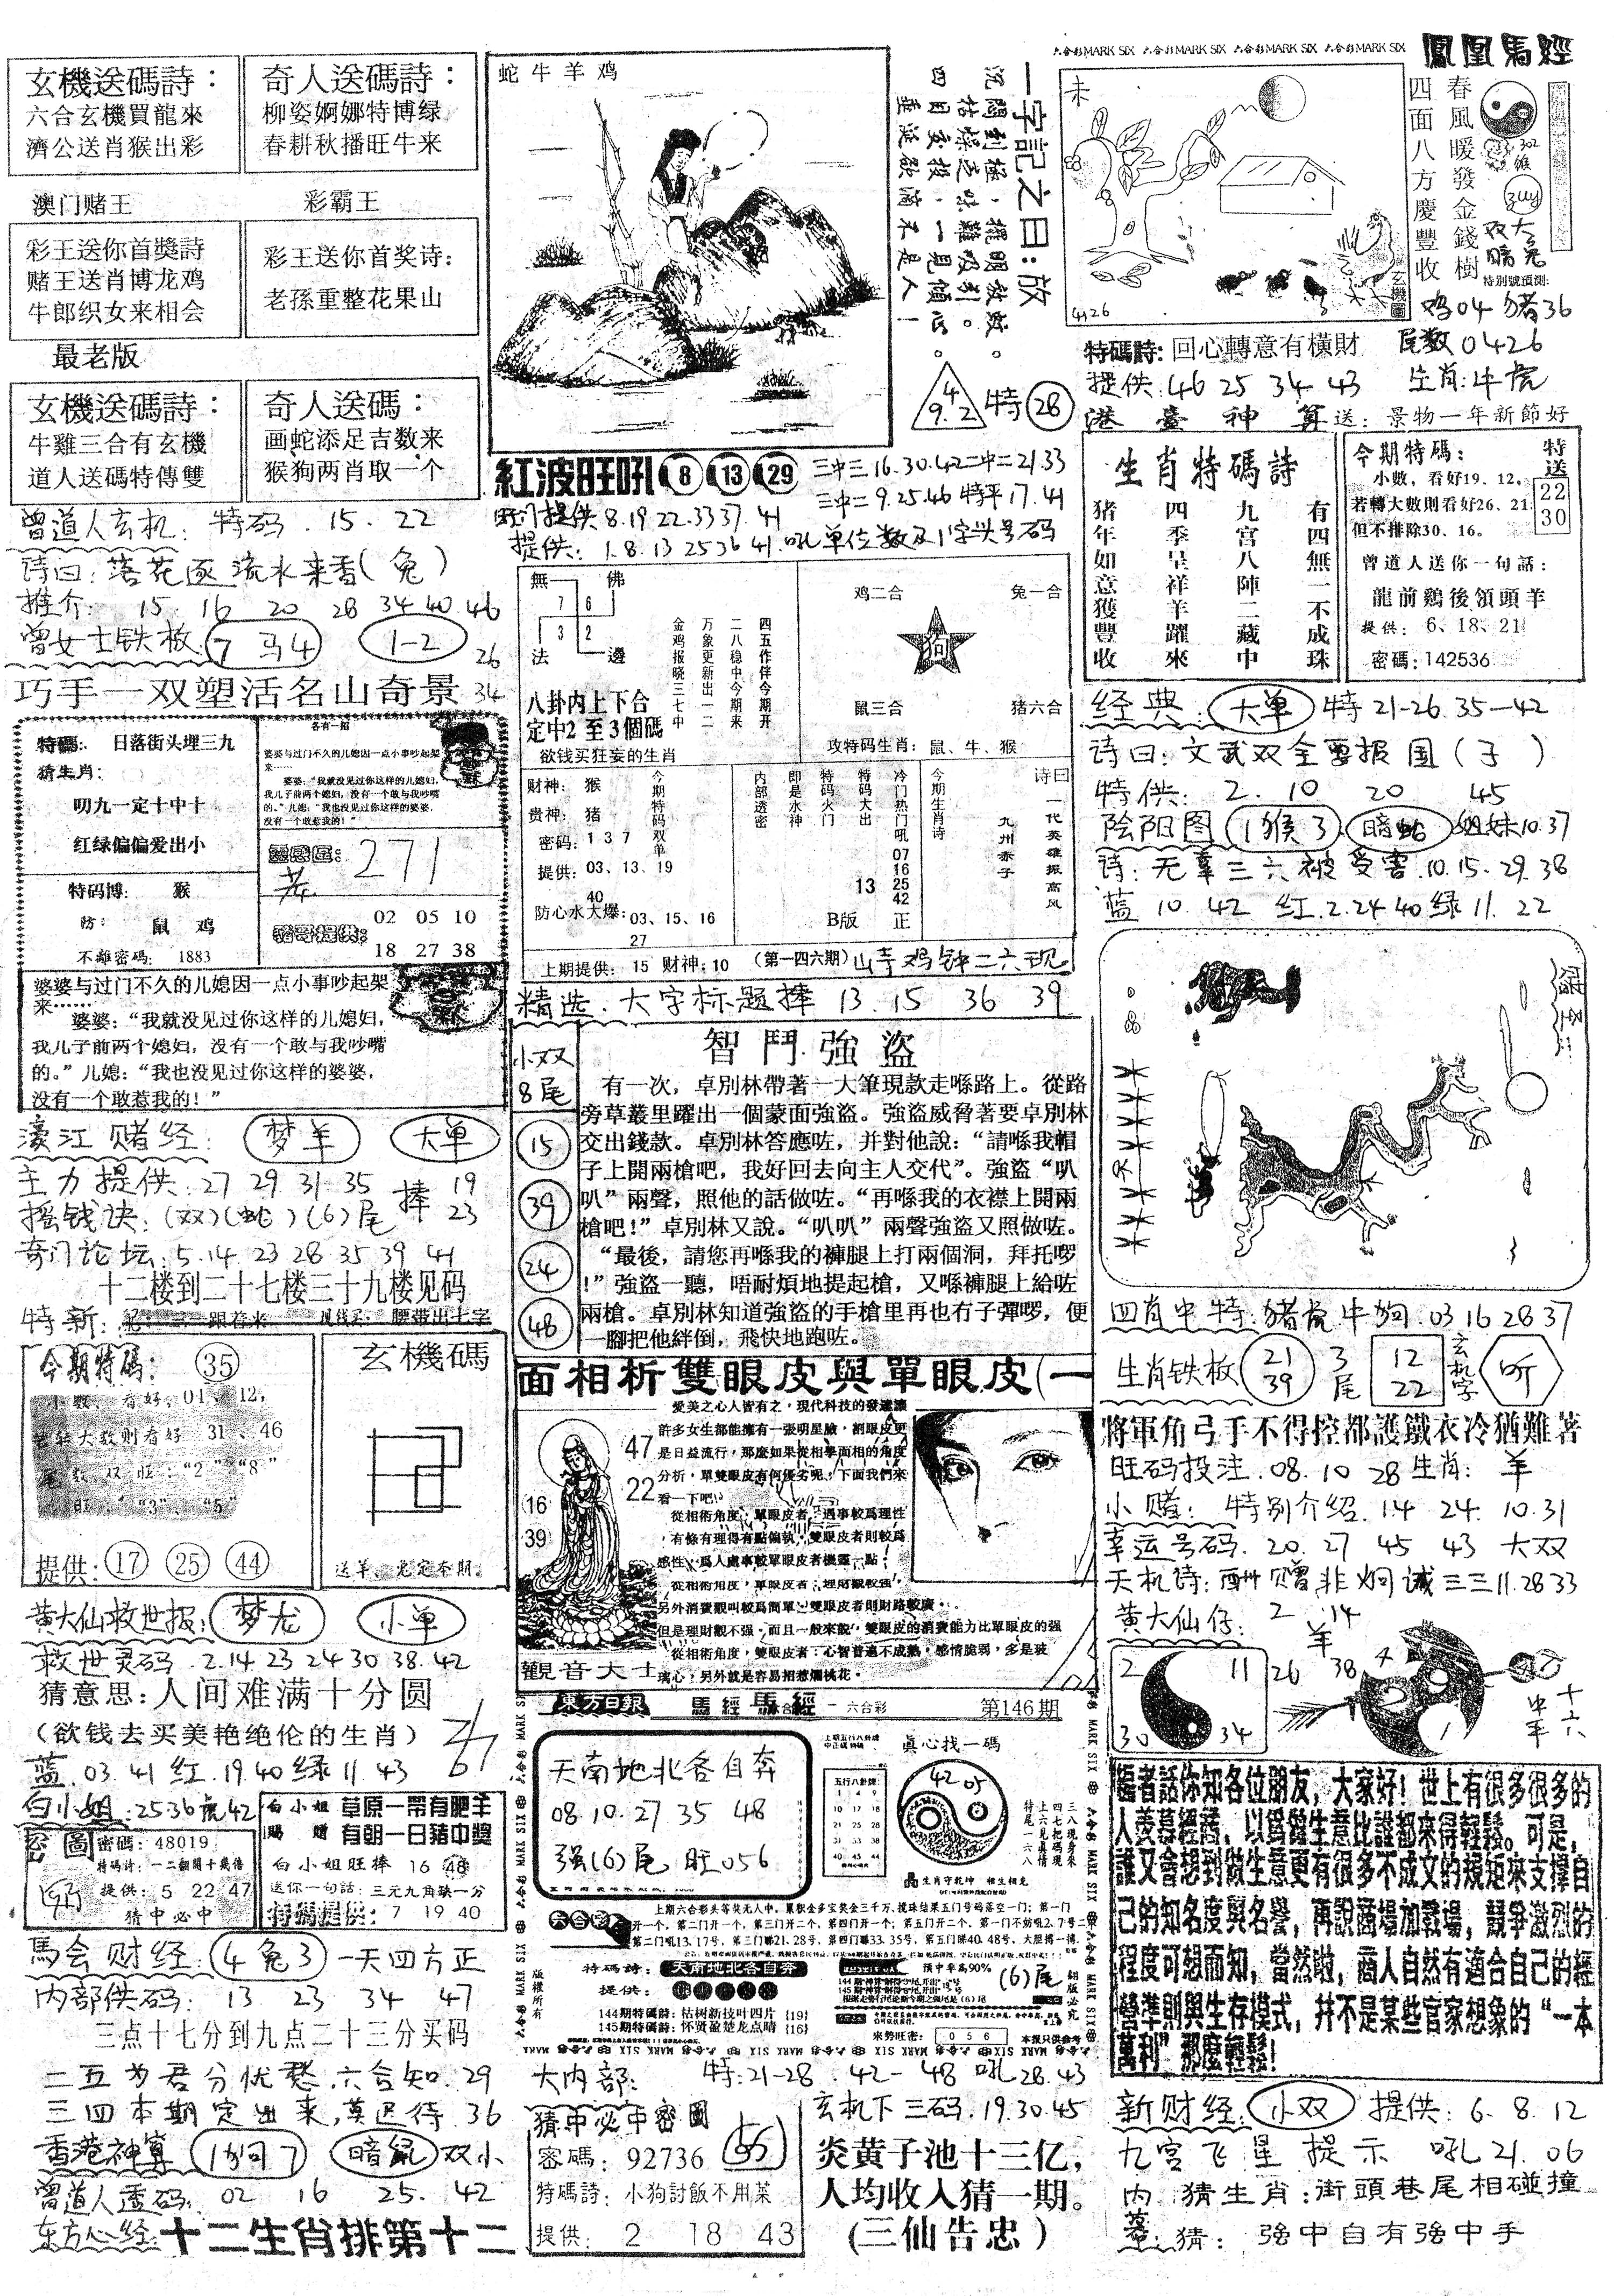 玄機送碼詩：
六合玄機買龍來
濟公送肖猴出彩
奇人送碼詩：
柳姿婀娜特博绿
春耕秋播旺牛来
澳门赌王
彩霸王
彩王送你首獎詩
赌王送肖博龙鸡
牛郎织女来相会
彩王送你首奖诗：
老孫重整花果山
最老版
玄機送碼詩：
牛雞三合有玄機
道人送碼特傳雙
奇人送碼：
画蛇添足吉数来
猴狗两肖取一个
曾道人玄机：特码 15.22
诗曰：落花逐流水来香(兔)
推介：15 16 20 28 34 40.46
曾女士铁板 7马4 1-2 26
巧手一双塑活名山奇景 34
特碼：日落街头埋三九
猜生肖：
叨九一定十中十
红绿偏偏爱出小
特码博：猴
防：鼠 鸡
不離密碼：1883
各有一招
婆婆与过门不久的儿媳因一点小事吵起架来……
婆婆：“我就没见过你这样的儿媳妇，
我儿子前两个媳妇，没有一个敢与我吵嘴
的。”儿媳：“我也没见过你这样的婆婆，
没有一个敢惹我的！”
271
02 05 10
18 27 38
婆婆与过门不久的儿媳因一点小事吵起架
来……
婆婆：“我就没见过你这样的儿媳妇，
我儿子前两个媳妇，没有一个敢与我吵嘴
的。”儿媳：“我也没见过你这样的婆婆，
没有一个敢惹我的！”
濠江赌经：梦羊 大单
主力提供.27 29 31 35 捧 19
摇钱诀：(双)(蛇)(6)尾 23
奇门论坛：5.14 23 28 35 39 41
十二楼到二十七楼三十九楼见码
特新：
腰带出七字
今期特碼：35
小数，看好：01、12，
若转大数则看好 31、46
尾数双旺：“2”“8”
“3”、“5”
提供：17 25 44
玄機碼
送羊、光定本期。
黄大仙救世报：梦龙 小单
救世灵码.2.14 23 24 30 38.42
猜意思：人间难满十分圆
（欲钱去买美艳绝伦的生肖）
蓝.03.41 红.19.40 绿11.43
白小姐.2536虎42
密碼：48019
提供：5 22 47
猜中必中
白小姐賜贈
草原一帶有肥羊
有朝一日豬中獎
白小姐旺棒 16 48
送你一句話：三元九角缺一分
特碼提供：7 19 40
馬会财经：4兔3 一天四方正
内部供码：13 23 34 47
三点十七分到九点二十三分买码
二五为君分忧愁.六合知.29
三四本期定出来,莫迟待.36
香港神算 1狗7 暗鼠 双小
曾道人透码：02 16 25.42
东方心经 十二生肖排第十二
蛇牛羊鸡
一字記之曰：放
沉闊到極，擺明放蚊。
枯燥之味難吸引。
四目交投，一見傾心。
垂涎欲滴不是人！
4 9.2 特 28
紅波旺吼 8 13 29
三中三16.30.42二中二21.33
三中二9.25.46 特平17.41
旺门提供8.19 22.33 37.41
提供：1.8.13 25 36 41.吼单位数及1字头号码
無 佛
7 6
3 2
法 邊
八卦内上下合
定中2至3個碼
四五作伴今期开
二八稳中今期来
万象更新出一二
金鸡报晓三七中
欲钱买狂妄的生肖
鸡二合
兔一合
狗
鼠三合
猪六合
攻特码生肖：鼠、牛、猴
财神：猴
贵神：猪
密码：1 3 7
提供：03、13、19
40
防心水大爆：03、15、16
27
今期特码双单
内部透密
即是水神
特码火门
特码大出
13
冷门热门吼
07 16 25 42
B版 正
今期生肖诗
诗曰
一代英雄振高风
九州赤子
上期提供：15 财神：10 （第一四六期）山寺鸡钟二六现
精选.大字标题捧 13.15 36 39
小双
8尾
15
39
24
48
智鬥強盜
有一次，卓別林帶著一大筆現款走喺路上。從路
旁草叢里躍出一個蒙面強盜。強盜威脅著要卓別林
交出錢款。卓別林答應咗，并對他說：“請喺我帽
子上開兩槍吧，我好回去向主人交代”。強盜“叭
叭”兩聲，照他的話做咗。“再喺我的衣襟上開兩
槍吧！”卓別林又說。“叭叭”兩聲強盜又照做咗。
“最後，請您再喺我的褲腿上打兩個洞，拜托啰
！”強盜一聽，唔耐煩地提起槍，又喺褲腿上給咗
兩槍。卓別林知道強盜的手槍里再也冇子彈啰，便
一腳把他絆倒，飛快地跑咗。
面相析雙眼皮與單眼皮(一
愛美之心人皆有之，現代科技的發達讓
許多女生都能擁有一張明星臉，割眼皮更
是日益流行，那麼如果從相學面相的角度
分析，單雙眼皮有何優劣呢，下面我們來
看一下吧！
從相術角度，單眼皮者，遇事較爲理性
，有條有理得有點偏執，雙眼皮者則較爲
感性，爲人處事較單眼皮者機靈一點；
從相術角度，單眼皮者，理財觀較強，
另外消費觀叫較爲簡單，雙眼皮者則財路較廣，
但是理財觀不强，而且一般來說，雙眼皮的消費能力比單眼皮的强
從相術角度，雙眼皮者：心智普遍不成熟，感情脆弱，多是玻
璃心，另外就是容易招惹爛桃花。
47
22
16
39
觀音大士
東方日報 馬經 馬經 六合彩 第146期
天南地北各自奔
08.10.27 35 48
强(6)尾 旺056
五行八卦牌
1 4 9
10 17 18
21 25 28
31 33 38
40 45 44
真心找一碼
42 05
三八現身來
四七把碼現
上六見真情
特尾一六八
生肖守乾坤 相生相克
六合彩
上期六合彩头等獎无人中，累积金多宝奖金三千万，搅珠结果五门号码落空一门；第一门
开一个，第二门开一个，第三门开二个，第四门开一个；第五门开二个，第一门不妨吼2、7号
第二门吼13、17号，第三门睇21、28号，第四门睇33、35号，第五门睇40、48号，大胆搏一搏，
特碼詩：天南地北各自奔
提供：
144期特碼詩：枯树新技叶四片{19}
145期特碼詩：怀贤盈楚龙点晴{16}
預中率高90%
(6)尾
來勢旺密：0 5 6
本报只供参考
版權所有
翻版必究
大内部：特：21-28.42-48 吼28.43
猜中必中密圖
密碼：92736
特碼詩：小狗討飯不用菜
提供：2 18 43
玄机下三码.19.30.45
炎黄子池十三亿，
人均收入猜一期。
(三仙告忠)
六合彩MARK SIX 六合彩MARK SIX 六合彩MARK SIX 六合彩MARK SIX
鳳凰馬經
未
4126
玄機圖
春風暖發金錢樹
四面八方慶豐收
302
猴
双大
暗兔
特別號預測：
鸡04 猪36
特碼詩：回心轉意有橫財
尾数0426
提供：46 25 34 43 生肖：牛虎
港臺神算送：景物一年新節好
生肖特碼詩
有四無一不成珠
九宮八陣二藏中
四季呈祥羊躍來
猪年如意獲豐收
今期特碼：
小數，看好19、12，
若轉大數則看好26、21
但不排除30、16。
特送
22
30
曾道人送你一句話：
龍前鷄後領頭羊
提供：6、18、21
密碼：142536
经典：大单 特21-26.35-42
诗曰：文武双全要报国(子)
特供：2.10 20 45
阴阳图 1猴3 暗蛇 姐妹10.37
诗：无辜三六被受害.10.15.29.38
蓝 10.42 红.2.24 40 绿11.22
四肖中特：猪虎牛狗.03 16 28 37
生肖铁板 21 39 3尾 12 22 玄机字 听
將軍角弓手不得控都護鐵衣冷猶難著
旺码投注.08.10 28 生肖：羊
小赌：特别介绍.14.24.10.31
幸运号码.20.27 45 43 大双
天机诗：酬赠非炯诚三三11.28 33
黄大仙仔：2 .14
羊
2 11
30 34
26 38
編者話你知各位朋友，大家好！世上有很多很多的
人羨慕經商，以爲做生意比誰都來得輕鬆。可是，
誰又會想到做生意更有很多不成文的規矩來支撐自
己的知名度與名譽，再說商場如戰場，競爭激烈的
程度可想而知，當然啦，商人自然有適合自己的經
營準則與生存模式，并不是某些官家想象的“一本
萬利”那麼輕鬆！
新财经：小双 提供：6.8.12
九宫飞星提示 吼21.06
内猜生肖：街頭巷尾相碰撞
猜：强中自有强中手